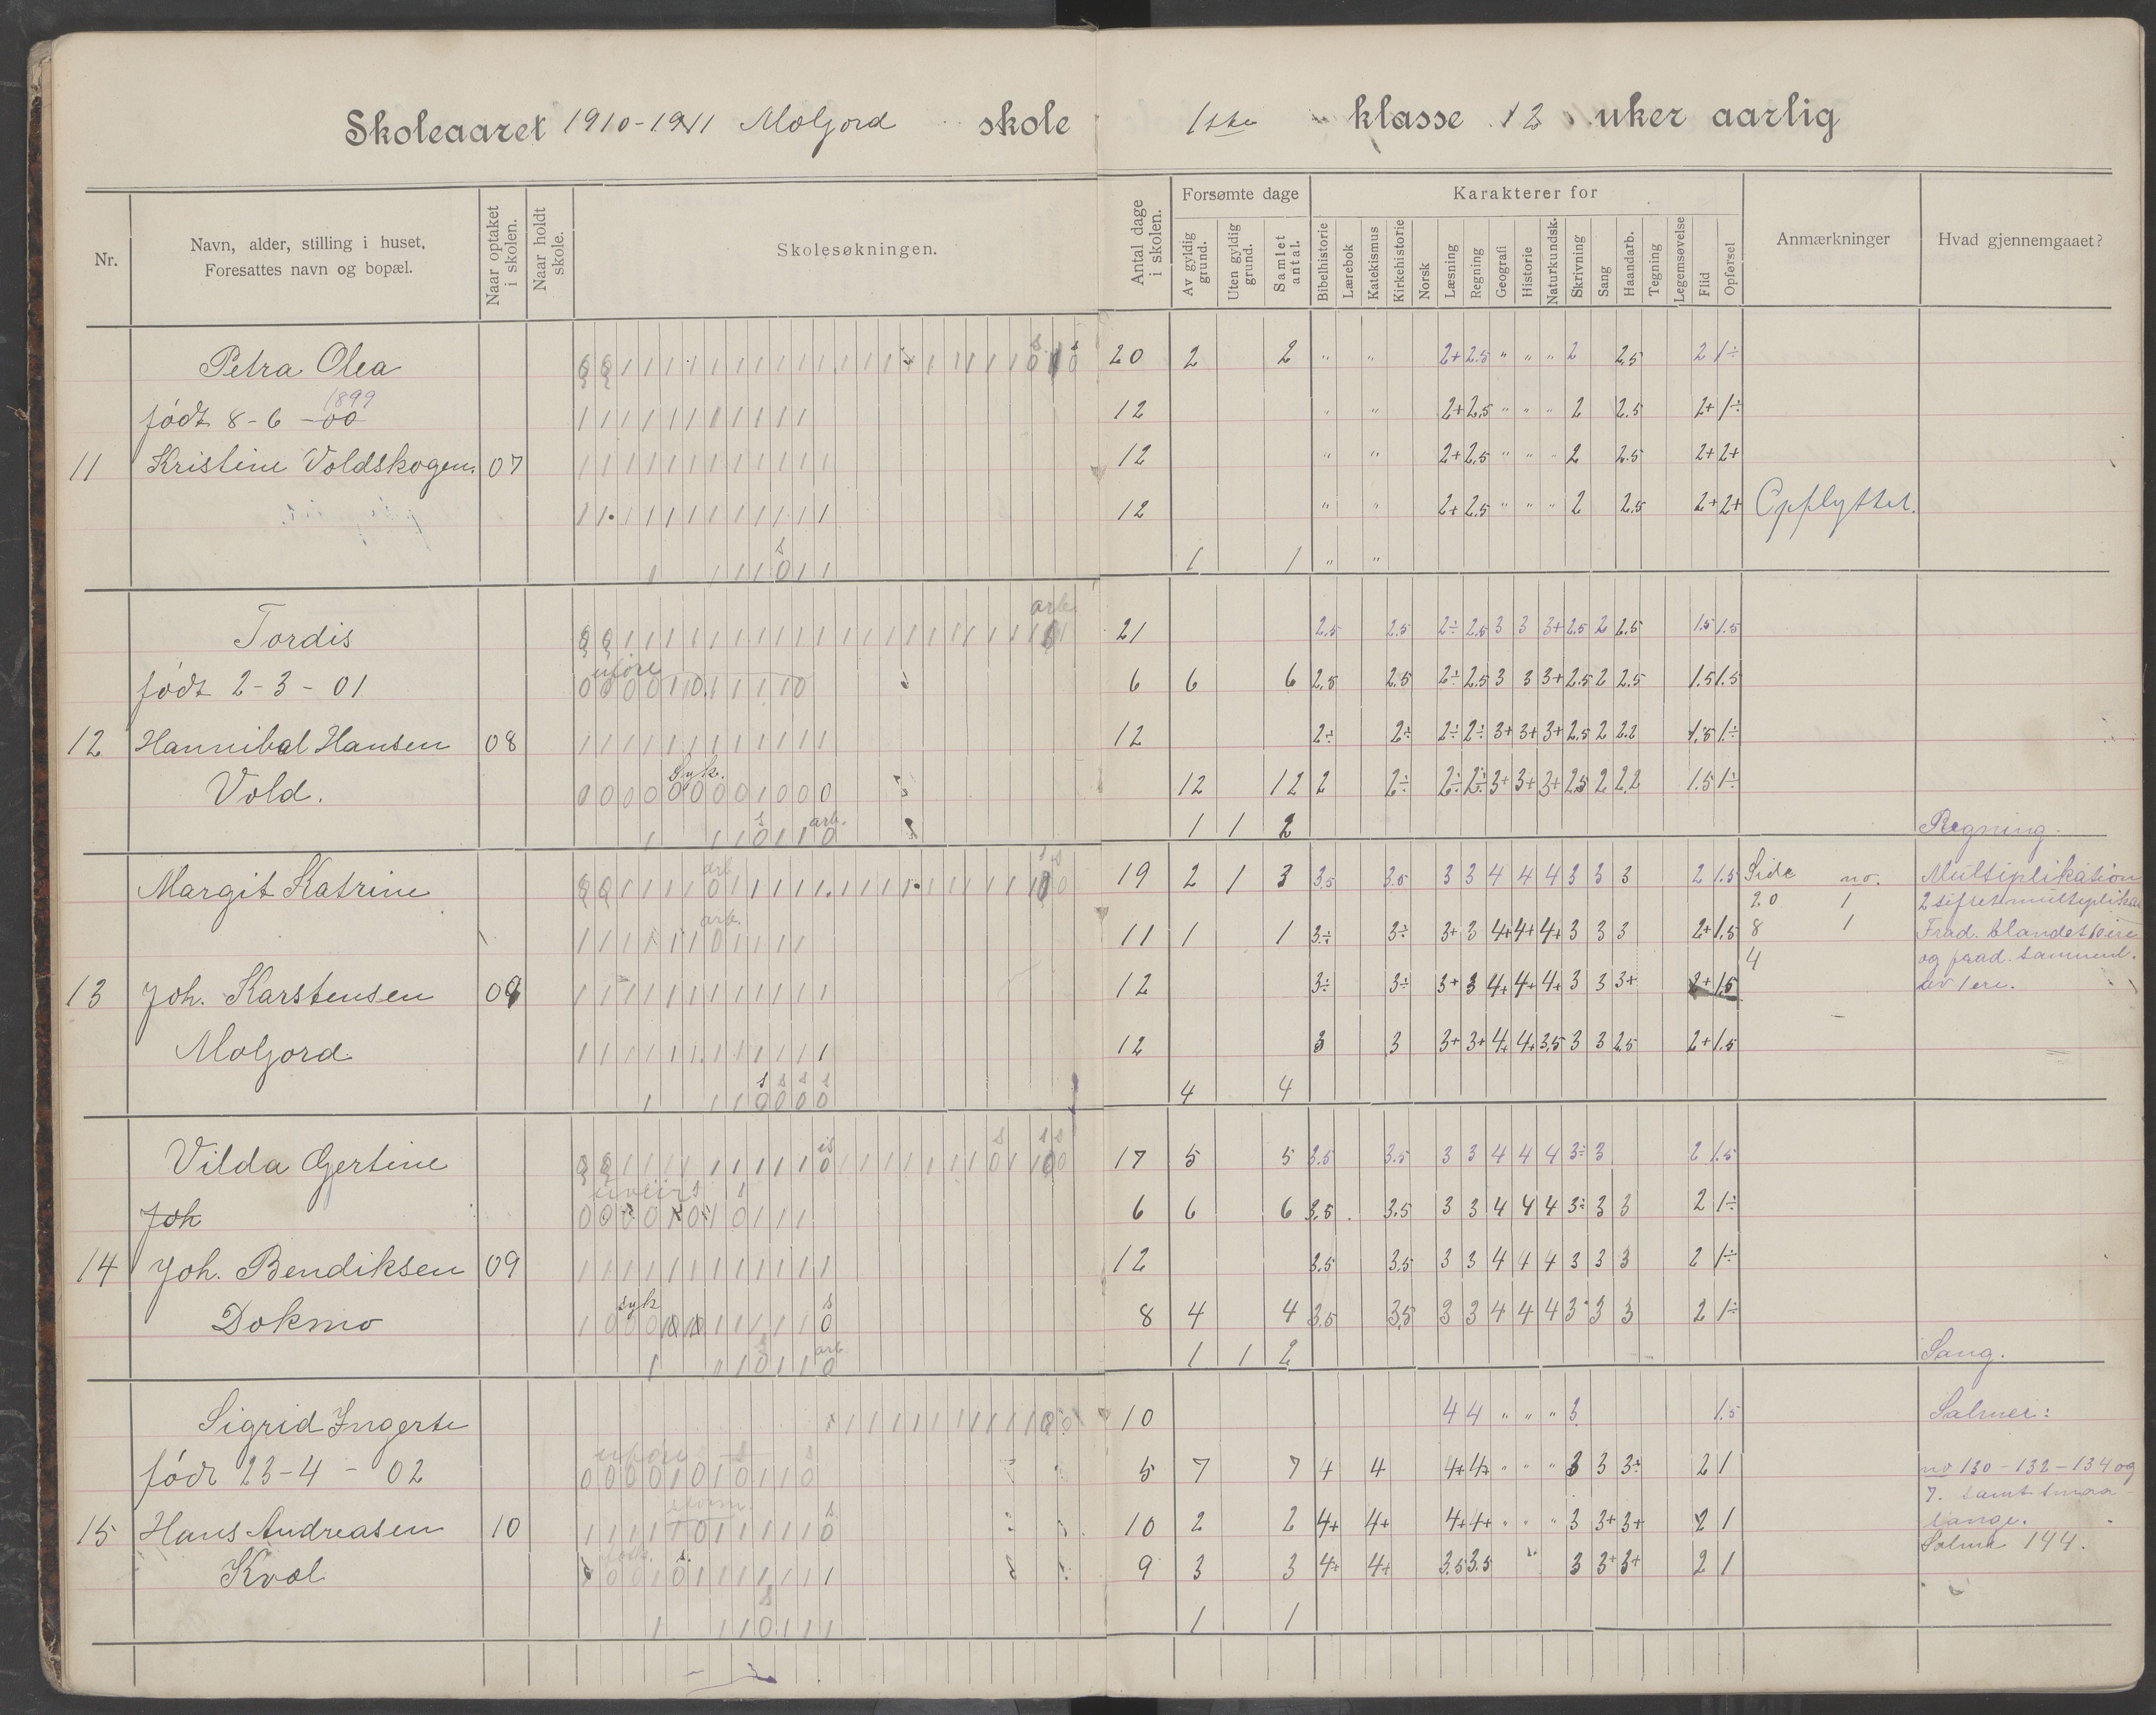 Skoleaaret 1910-1911 Moljord skole 1ste klasse 12 uker aarlig
Nr.
Navn, alder, stilling i huset,
Foresattes navn og bopæl.
Naar optaket i skolen.
Naar holdt skole.
Skolesøkningen.
Antal dage i skolen.
Forsømte dage
Av gyldig grund.
Uten gyldig grund.
Samlet antal.
Karakterer for
Bibelhistorie
Lærebok
Katekismus
Kirkehistorie
Norsk
Læsning
Regning
Geografi
Historie
Naturkundsk.
Skrivning
Sang
Haandarb.
Tegning
Legemsøvelse
Flid
Opførsel
Anmærkninger
Hvad gjennemgaaet?
Petra Olea 20 2 2 " " 2+ 2.5 " " " 2 2.5 2 1÷
1899
født 8-6-00 12 " " 2+ 2.5 " " " 2 2.5 2+ 1÷
11 Kristine Voldskogen 07 12 " " 2+ 2.5 " " " 2 2.5 2+ 2+
12 " " 2+ 2.5 " " " 2 2.5 2+ 2+ Opflyttet.
s
1 1 1 1 0 1 1 1 1 " "
arb.
Tordis 21 2.5 2.5 2÷ 2.5 3 3 3+ 2.5 2 2.5 1.5 1.5
uføre
født 2-3-01 6 6 6 2.5 2.5 2÷ 2.5 3 3 3+ 2.5 2 2.5 1.5 1.5
12 Hannibal Hansen 08 12 2÷ 2÷ 2÷ 2÷ 3+ 3+ 3+ 2.5 2 2.2 1.5 1÷
Syk.
Vold. 0 0 0 0 0 0 0 0 1 0 0 0 12 12 2 2÷ 2÷ 2÷ 3+ 3+ 3+ 2.5 2 2.2 1.5 1÷
s arb.
1 1 1 0 1 1 0 1 1 2 Regning.
arb
Margit Katrine 19 2 1 3 3.5 3.5 3 3 4 4 4 3 3 3 2 1.5 Side no. Multiplikation
20 1 2 sifret multiplika
arb.
11 1 1 3÷ 3÷ 3+ 3 4+ 4+ 4+ 3 3 3 2+ 1.5 8 1 Frad. blandet 10ere
4 og frad. sammenl.
13 Joh. Karstensen 09 12 3÷ 3÷ 3+ 3 4+ 4+ 4+ 3 3 3+ 2+ 1.5 av 1ere.
Moljord 12 3 3 3+ 3+ 4+ 4+ 3.5 3 3 2.5 2+ 1.5
s s s s
1 1 1 0 0 0 0 4 4
s s s
Vilda Gertine 17 5 5 3.5 3.5 3 3 4 4 4 3÷ 3 2 1.5
Joh 6 6 6 3.5 3.5 3 3 4 4 4 3÷ 3 3 2 1÷
14 Joh. Bendiksen 09 12 3.5 3.5 3 3 4 4 4 3 3 3 2 1÷
syk s
Dokmo 8 4 4 3.5 3.5 3 3 4 4 4 3 3 3 2 1÷
arb
1 1 1 0 1 1 0 1 1 2 Sang.
Sigrid Ingerte 10 4 4 " " " 3 1.5 Salmer:
uføre s s
født 23-4-02 0 0 0 0 1 0 1 0 1 1 0 5 7 7 4 4 4+ 4+ " " " 3 3 3÷ 2 1 no 130-132-134 og
7. samt smaa-
15 Hans Andreasen 10 10 2 2 4+ 4+ 4+ 4+ " " " 3 3+ 3+ 2 1 sange.
Salme 144.
Kvæl 9 3 3 4+ 4+ 3.5 3.5 " 3 3+ 3+ 2 1
s
1 1 1 0 1 1 1 1 1